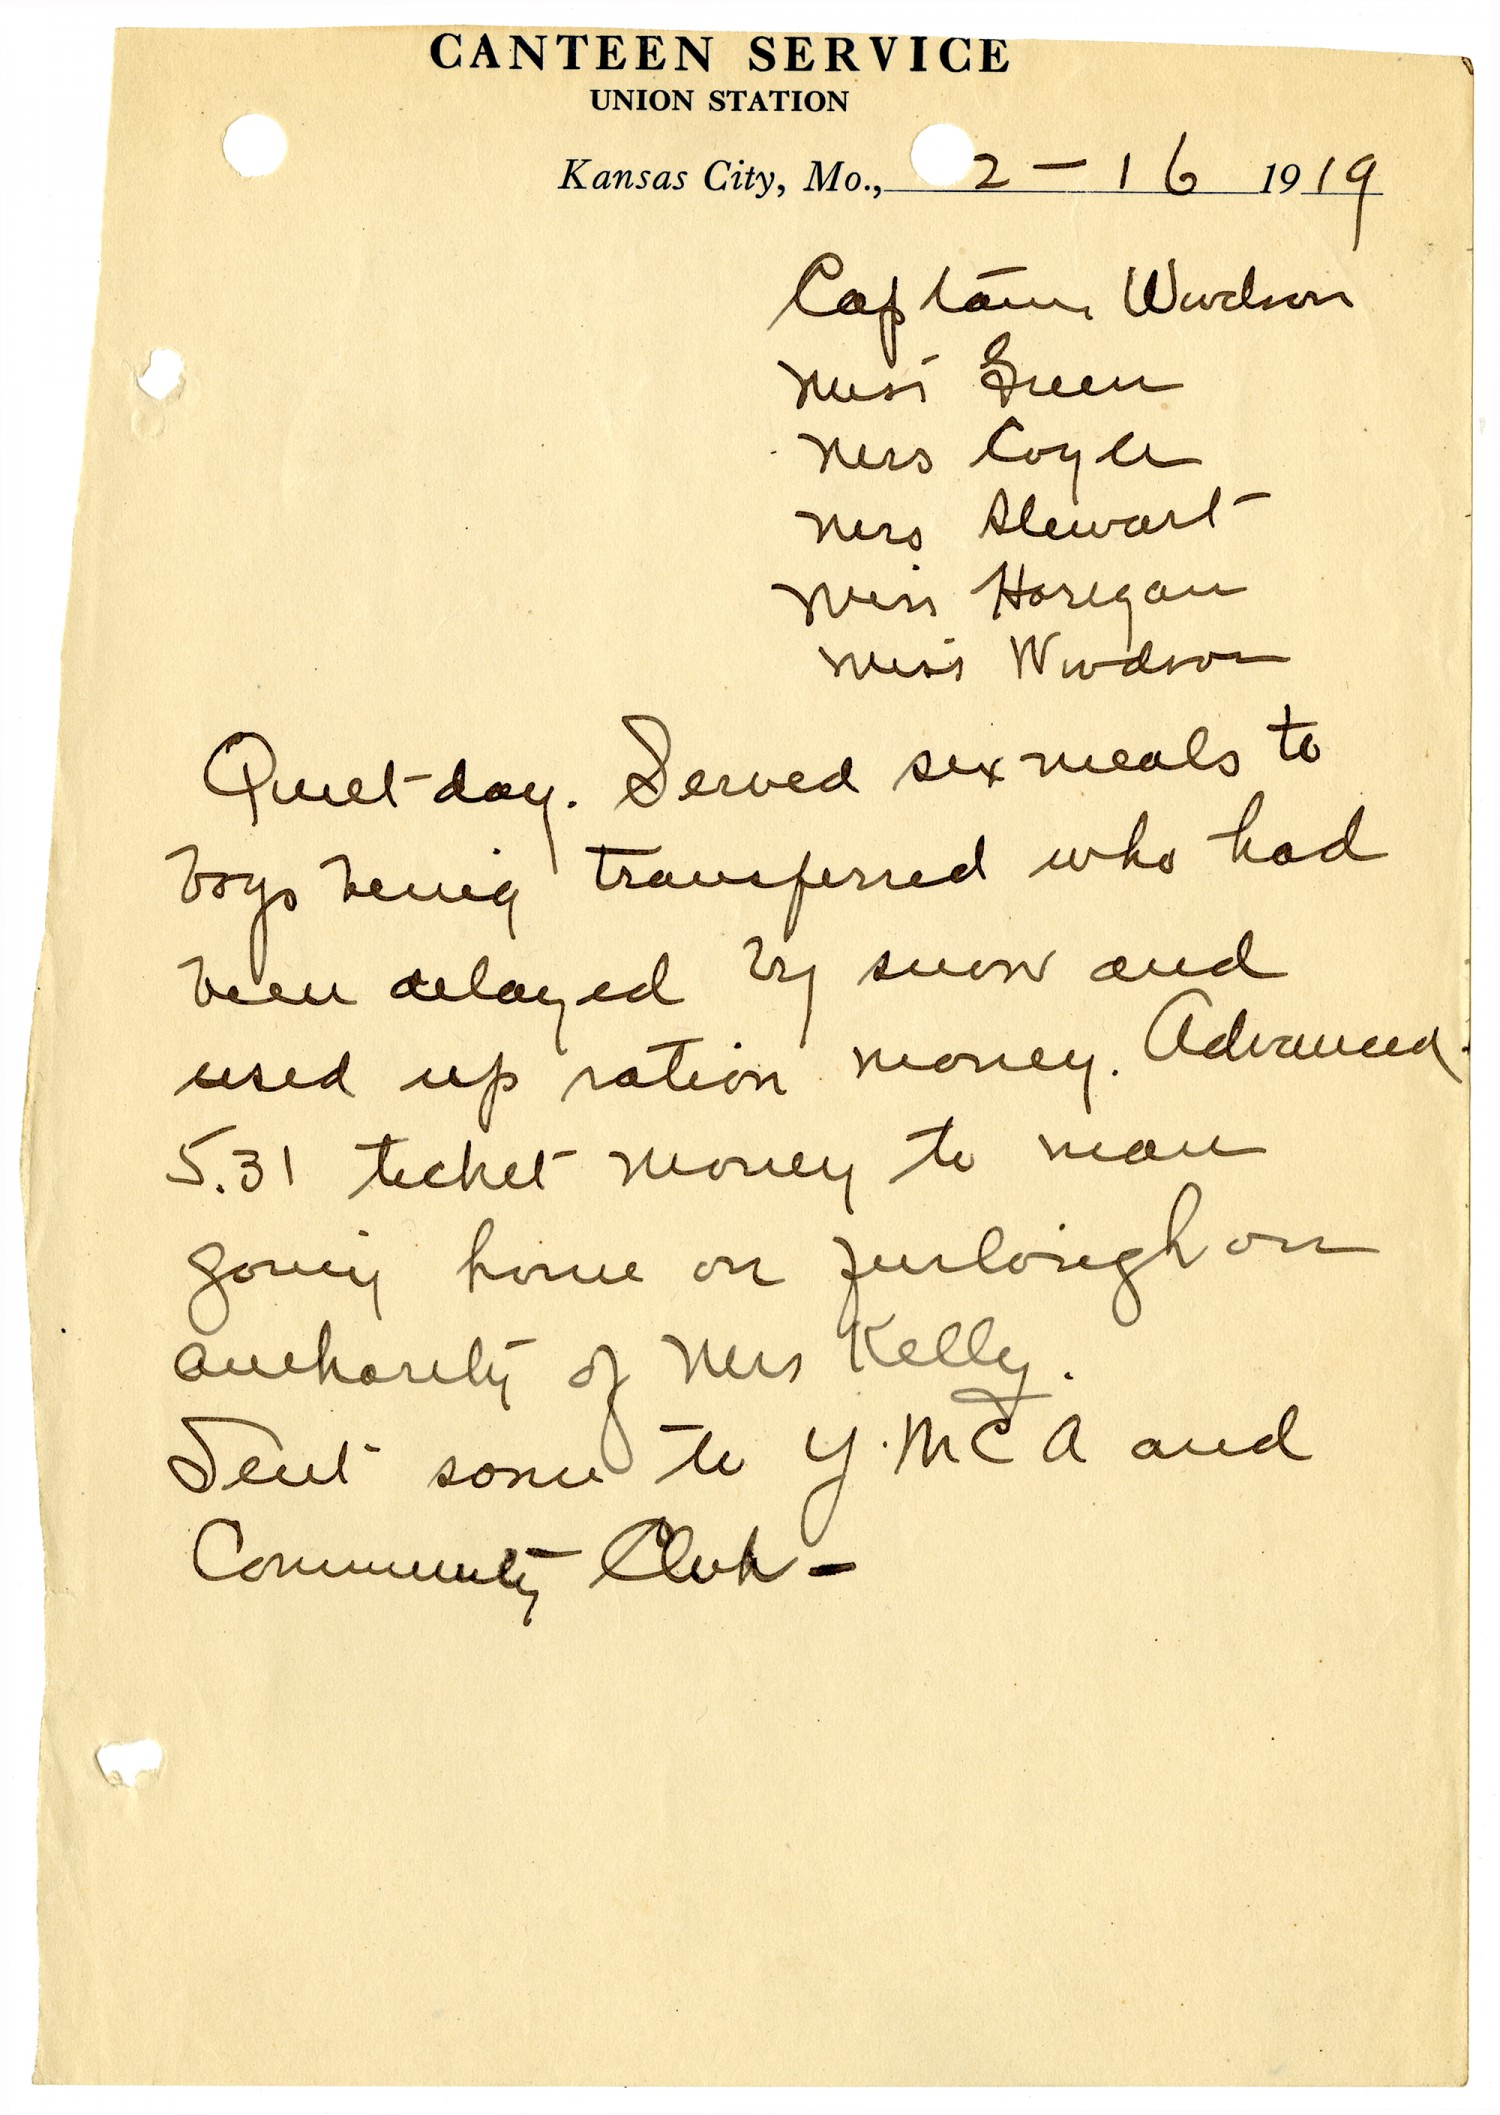 CANTEEN SERVICE
UNION STATION
Kansas City, Mo., 2-16 1919
Captain Woodson
Miss Green
Mrs Coyle
Mrs Stewart
Miss Horigan
Miss Woodson
Quiet day. Served six meals to
boys being transferred who had
been delayed by snow and
used up ration money. Advanced
5.31 ticket money to man
going home on furlough on
authority of Mrs Kelly.
Sent some to Y.M.C.A and
Community Club -